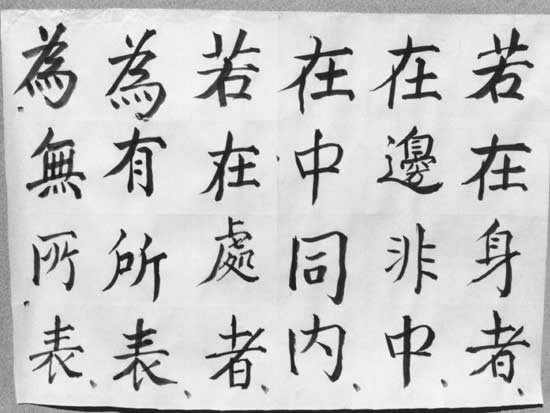 若在身者
在邊非中
在中同内
若在處者
為有所表
為無所表